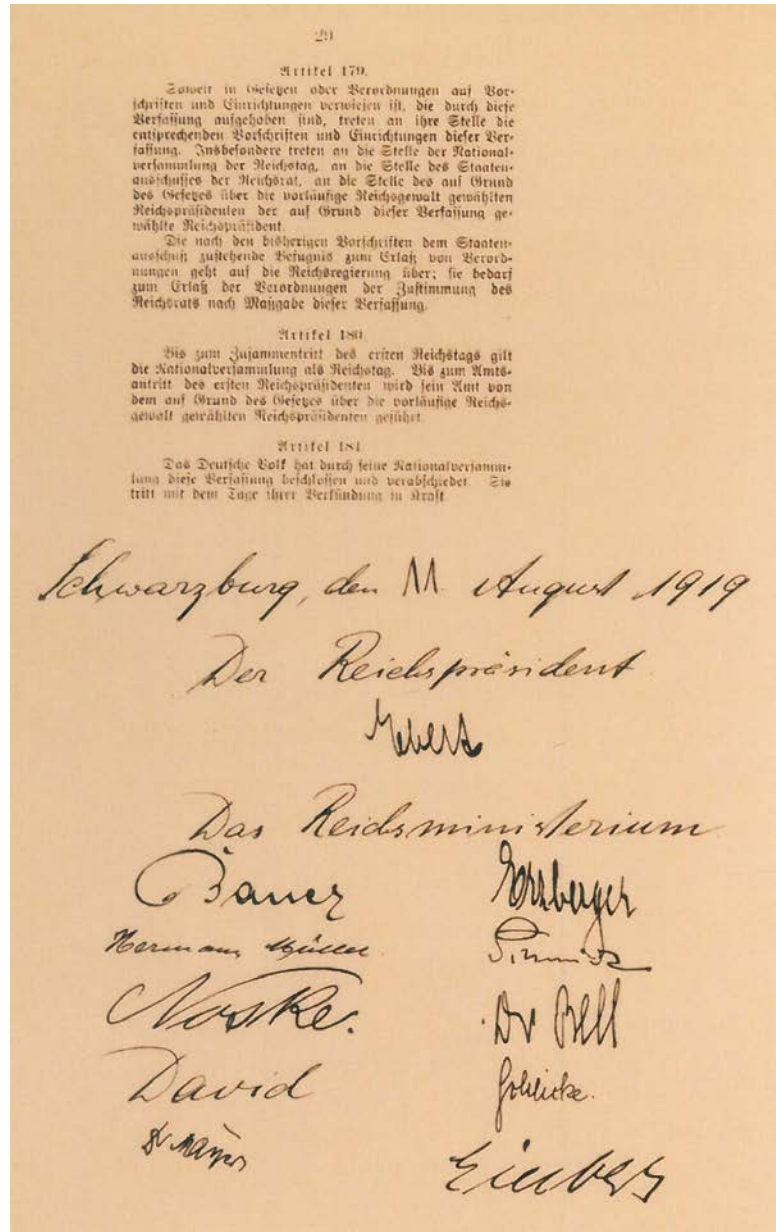 29
Artikel 179.
Soweit in Gesetzen oder Verordnungen auf Vor-
schriften und Einrichtungen verwiesen ist, die durch diese
Verfassung aufgehoben sind, treten an ihre Stelle die
entsprechenden Vorschriften und Einrichtungen dieser Ver-
fassung. Insbesondere treten an die Stelle der National-
versammlung der Reichstag, an die Stelle des Staaten-
ausschusses der Reichsrat, an die Stelle des auf Grund
des Gesetzes über die vorläufige Reichsgewalt gewählten
Reichspräsidenten der auf Grund dieser Verfassung ge-
wählte Reichspräsident.
Die nach den bisherigen Vorschriften dem Staaten-
ausschuß zustehende Befugnis zum Erlaß von Verord-
nungen geht auf die Reichsregierung über; sie bedarf
zum Erlaß der Verordnungen der Zustimmung des
Reichsrats nach Maßgabe dieser Verfassung.
Artikel 180
Bis zum Zusammentritt des ersten Reichstags gilt
die Nationalversammlung als Reichstag. Bis zum Amts-
antritt des ersten Reichspräsidenten wird sein Amt von
dem auf Grund des Gesetzes über die vorläufige Reichs-
gewalt gewählten Reichspräsidenten geführt.
Artikel 181
Das Deutsche Volk hat durch seine Nationalversamm-
lung diese Verfassung beschlossen und verabschiedet. Sie
tritt mit dem Tage ihrer Verkündung in Kraft
Schwarzburg, den 11. August 1919
Der Reichspräsident
Ebert
Das Reichsministerium
Bauer Erzberger
Hermann Müller Schmidt
Noske. Dr Bell
David
Dr Mayer